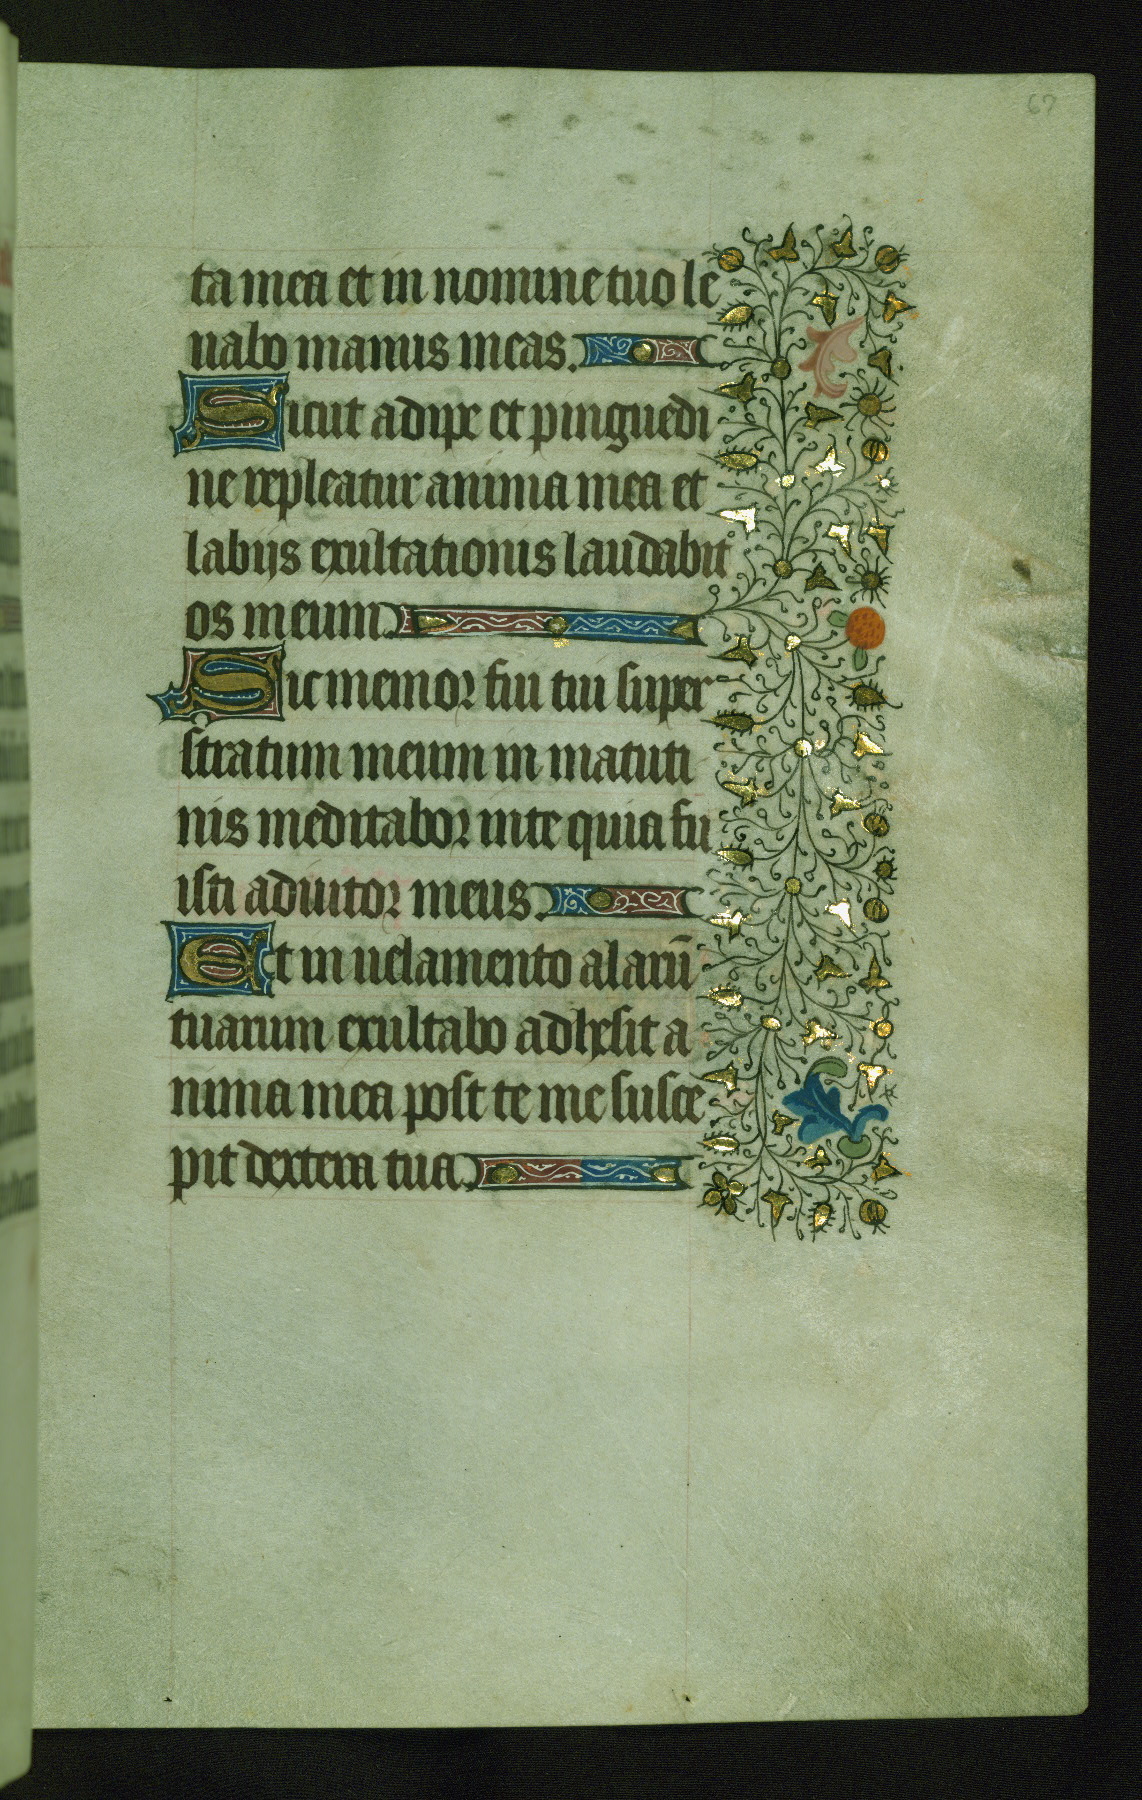 67
ta mea et in nomine tuo le
uabo manus meas.
Sicut adipe et pinguedi
ne repleatur anima mea et
labijs exultationis laudabit
os meum
Sic memor fui tui super
stratum meum in matuti
nis meditabor inte quia fu
isti adiutor meus
Et in uelamento alarū
tuarum exultabo adhesit a
nima mea post te me susce
pit dextera tua